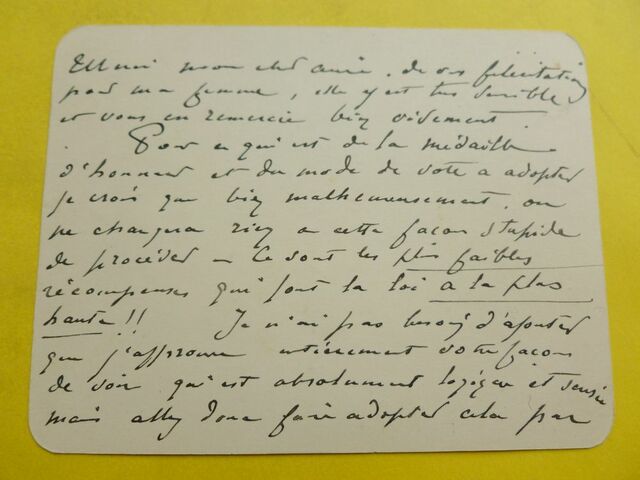 Merci mon cher ami, de vos félicitations
pour ma femme, elle y est très sensible
et vous en remercie bien vivement.
Pour ce qui est de la médaille
d'honneur et du mode de vote a adopter
je crois que bien malheureusement, on
ne changera rien a cette façon stupide
de procéder — Ce sont les plus faibles
récompenses qui font la loi a la plus
haute !! Je n'ai pas besoin d'ajouter
que j'approuve entièrement votre façon
de voir qui est absolument logique et sensée
mais allez donc faire adopter cela par